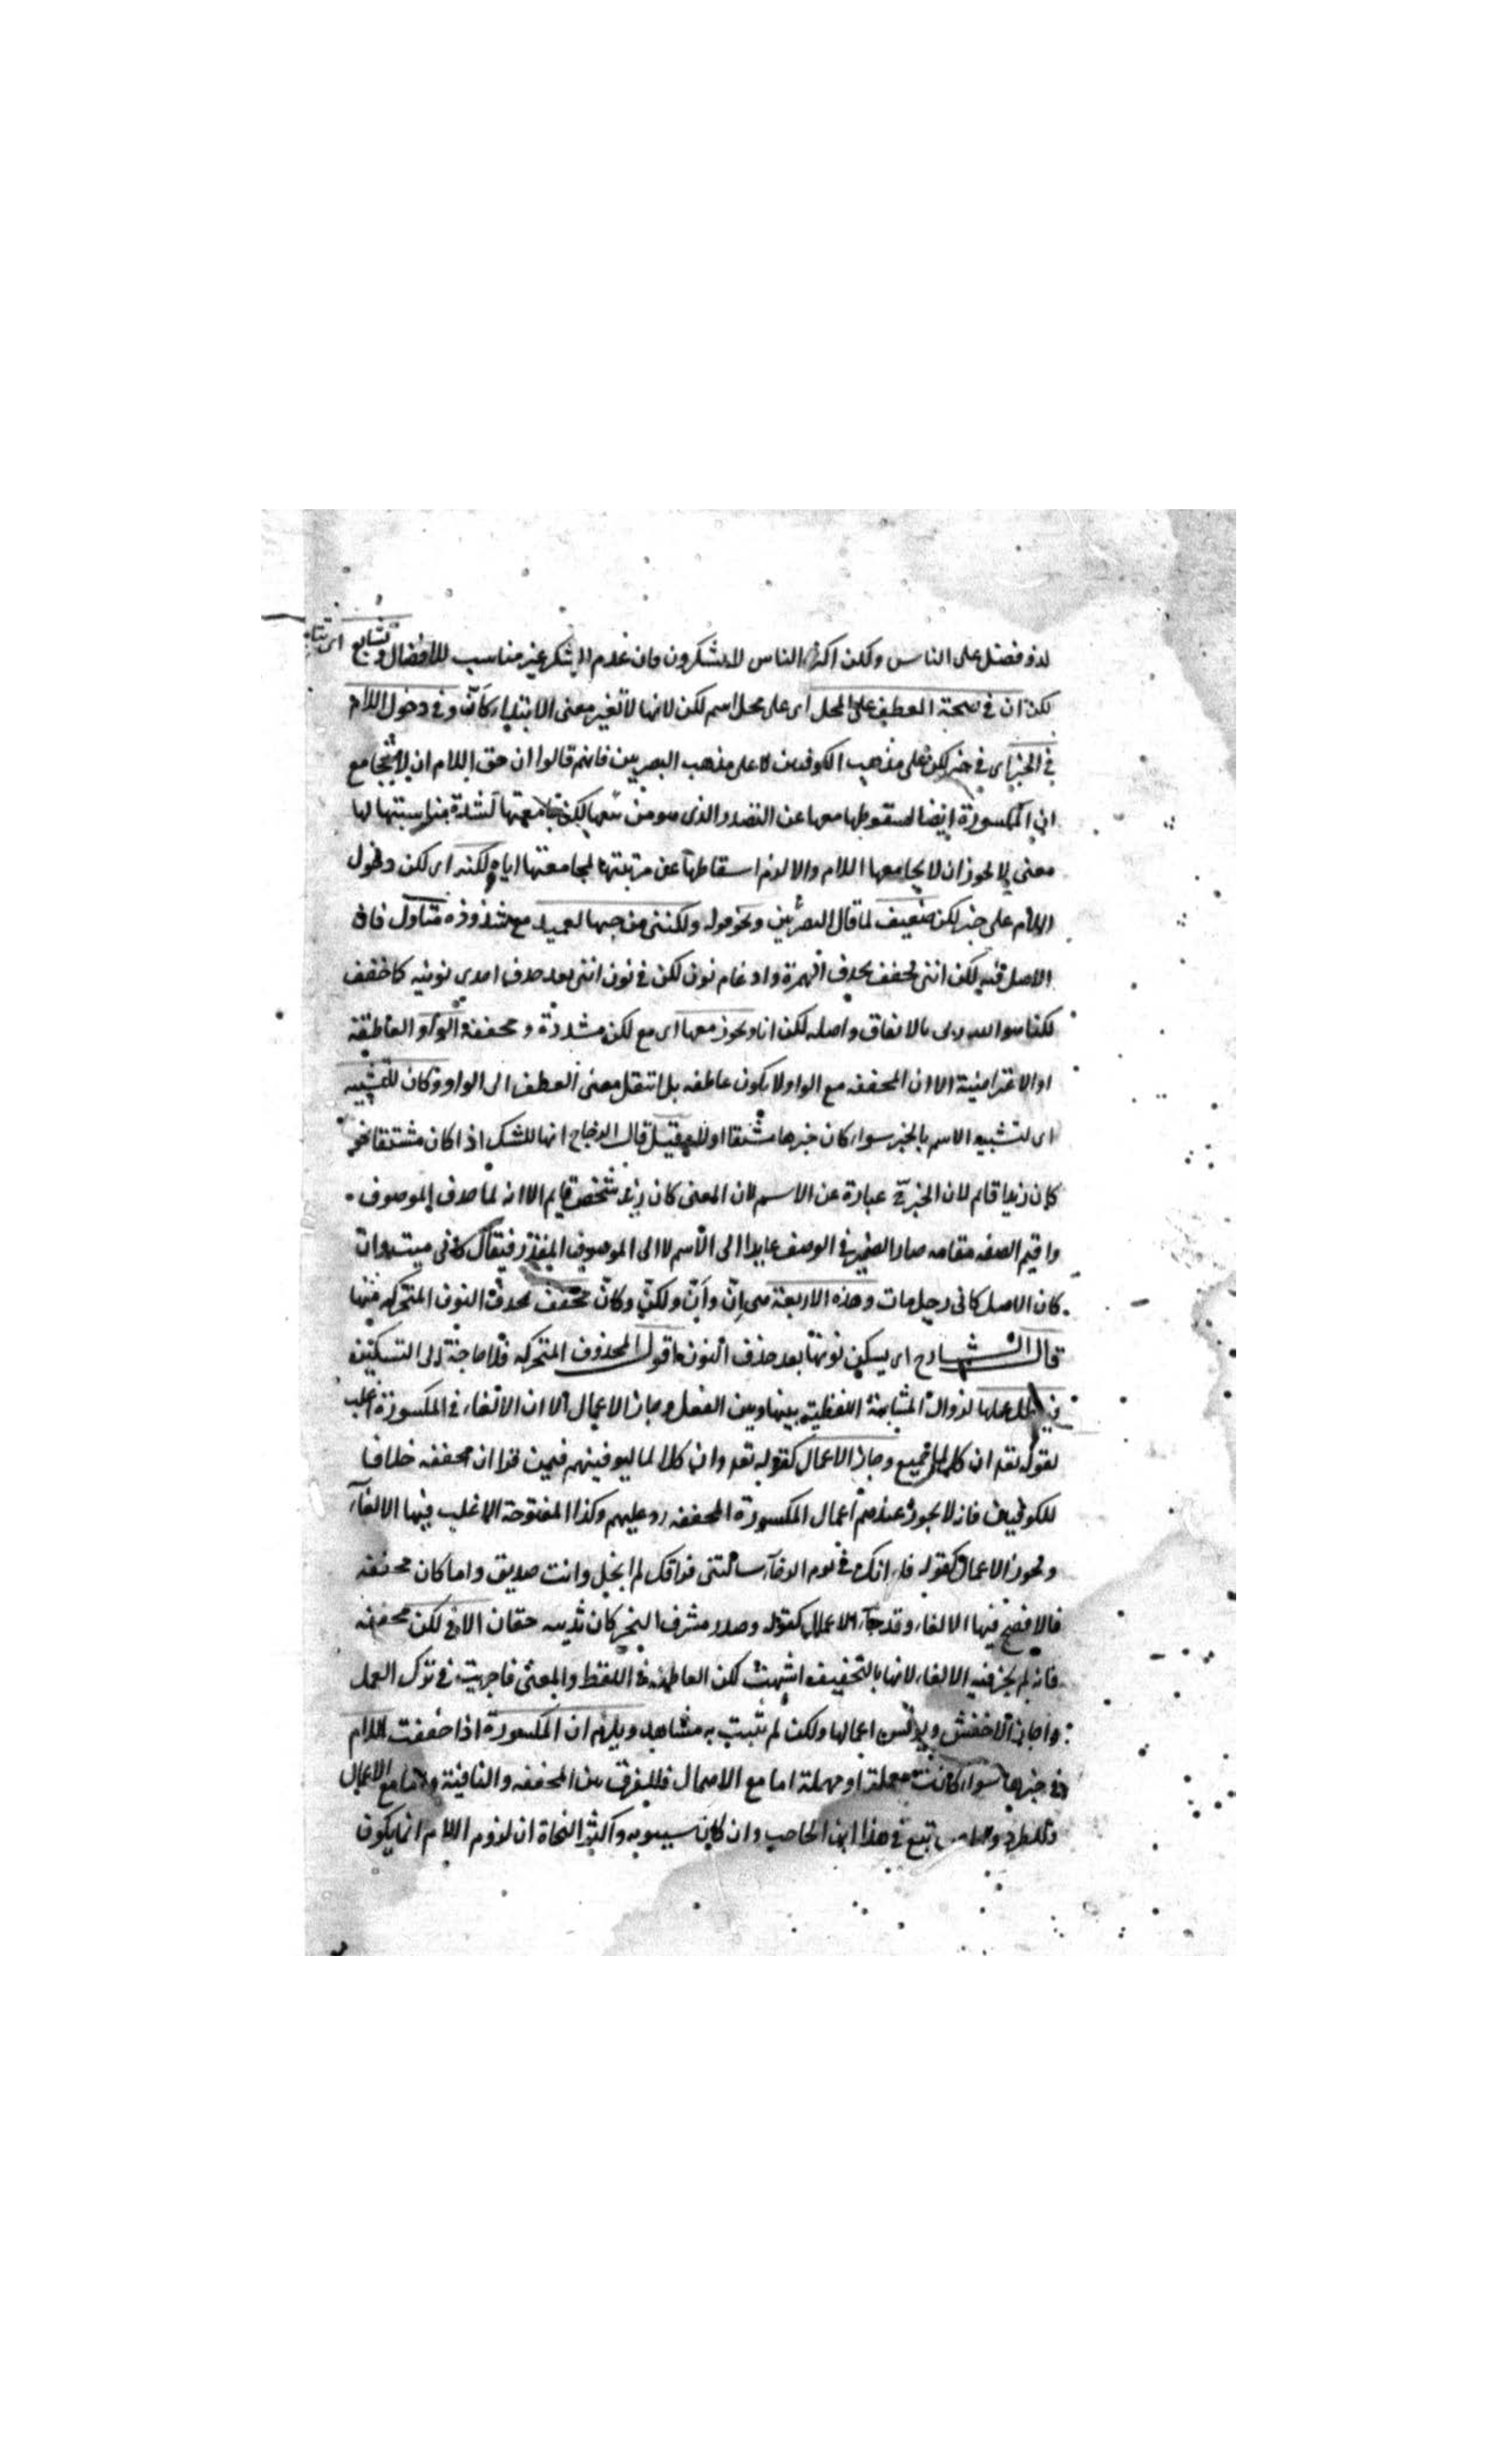 لذو فضل على الناس ولكن اكثر الناس لا يشكرون فان عدم الشكر غير مناسب للافضال وتشايع
لكن ان في صحة العطف على المحل اى على محل اسم لكن لانها لا تغير معنى الابتداء كان وفي دخول اللام
في الخبر اى في خبر لكن على مذهب الكوفيين لا على مذهب البصريين فانهم قالوا ان حق اللام ان لا تجامع
ان المكسورة ايضا لسقوطها معها عن التصدر الذى هو من لكن جامعتها لشدة مناسبتها لها
معنى لا يجوز ان لا يجامعها اللام والا لزم اسقاطها عن مرتبتها لمجامعتها اياه لكنه اى لكن دخول
اللام على خبر لكن ضعيف لما قال البصريين ونحو قوله ولكننى من حبها لعميد مع شذوذه متاول فان
الاصل فيه لكن اننى فخفف بحذف الهمزة وادغام نون لكن في نون اننى بعد حذف احدى نونيه كما خفف
لكنا هو الله ربى بالاتفاق واصله لكن انا ويجوز معها اى مع لكن مشددة ومخففة الواو العاطفة
او الاعتراضية الا ان المخففه مع الواو لا يكون عاطفه بل انتقل معنى العطف الى الواو وكان للتشبيه
اى لتشبيه الاسم بالخبر سواء كان خبرها مشتقا اولا وقيل قال الزجاج انها للشك اذا كان مشتقا نحو
كان زيدا قائم لان الخبر ح عبارة عن الاسم لان المعنى كان زيد شخص قايم الا انه لما حذف الموصوف
واقيم الصفه مقامه صار الضمير في الوصف عايدا الى الاسم لا الى الموصوف المقدر فيقال كانى ميت وان
كان الاصل كانى رجل مات وهذه الاربعة هى اِنّ واَنّ ولكنّ وكانّ مخفف بحذف النون المتحركه منها
قال الشارح اى يسكن نونها بعد حذف النون اقول المحذوف المتحركه فلا حاجة الى التسكين
فيبطل عملها لزوال المشابهة اللفظيه بينها وبين الفعل وجاز الاعمال الا ان الالغاء في المكسورة اغلب
لقوله تعه ان كل لما جميع وجاز الاعمال كقوله تعه وان كلا لما ليوفينهم فيمن قرا ان مخففه خلافا
للكوفيين فانه لا يجوز عندهم اعمال المكسورة المخففه رد عليهم وكذا المفتوحة الاغلب فيها الالغاء
ويجوز الاعمال كقوله فلو انك في يوم الرخآء سالتنى فراقك لم ابخل وانت صديق واما كان مخففه
فالافصح فيها الالغاء وقد جاء الاعمال كقوله وصدر مشرف النحر كان ثدييه حقان الا في لكن مخففه
فانه لم يجز فيه الا الالغاء لانها بالتخفيف اشبهت لكن العاطفة في اللفظ والمعنى فاجريت في ترك العمل
واجاز الاخفش ويونس اعمالها ولكن لم يثبت به شاهد ويلزم ان المكسورة اذا خففت اللام
في خبرها سواء كانت معملة او مهملة اما مع الاهمال فللفرق بين المخففه والنافية واما مع الاعمال
فللطرد تبع في هذا ابن الحاجب وان كان سيبويه واكثر النحاة ان لزوم اللام انما يكون